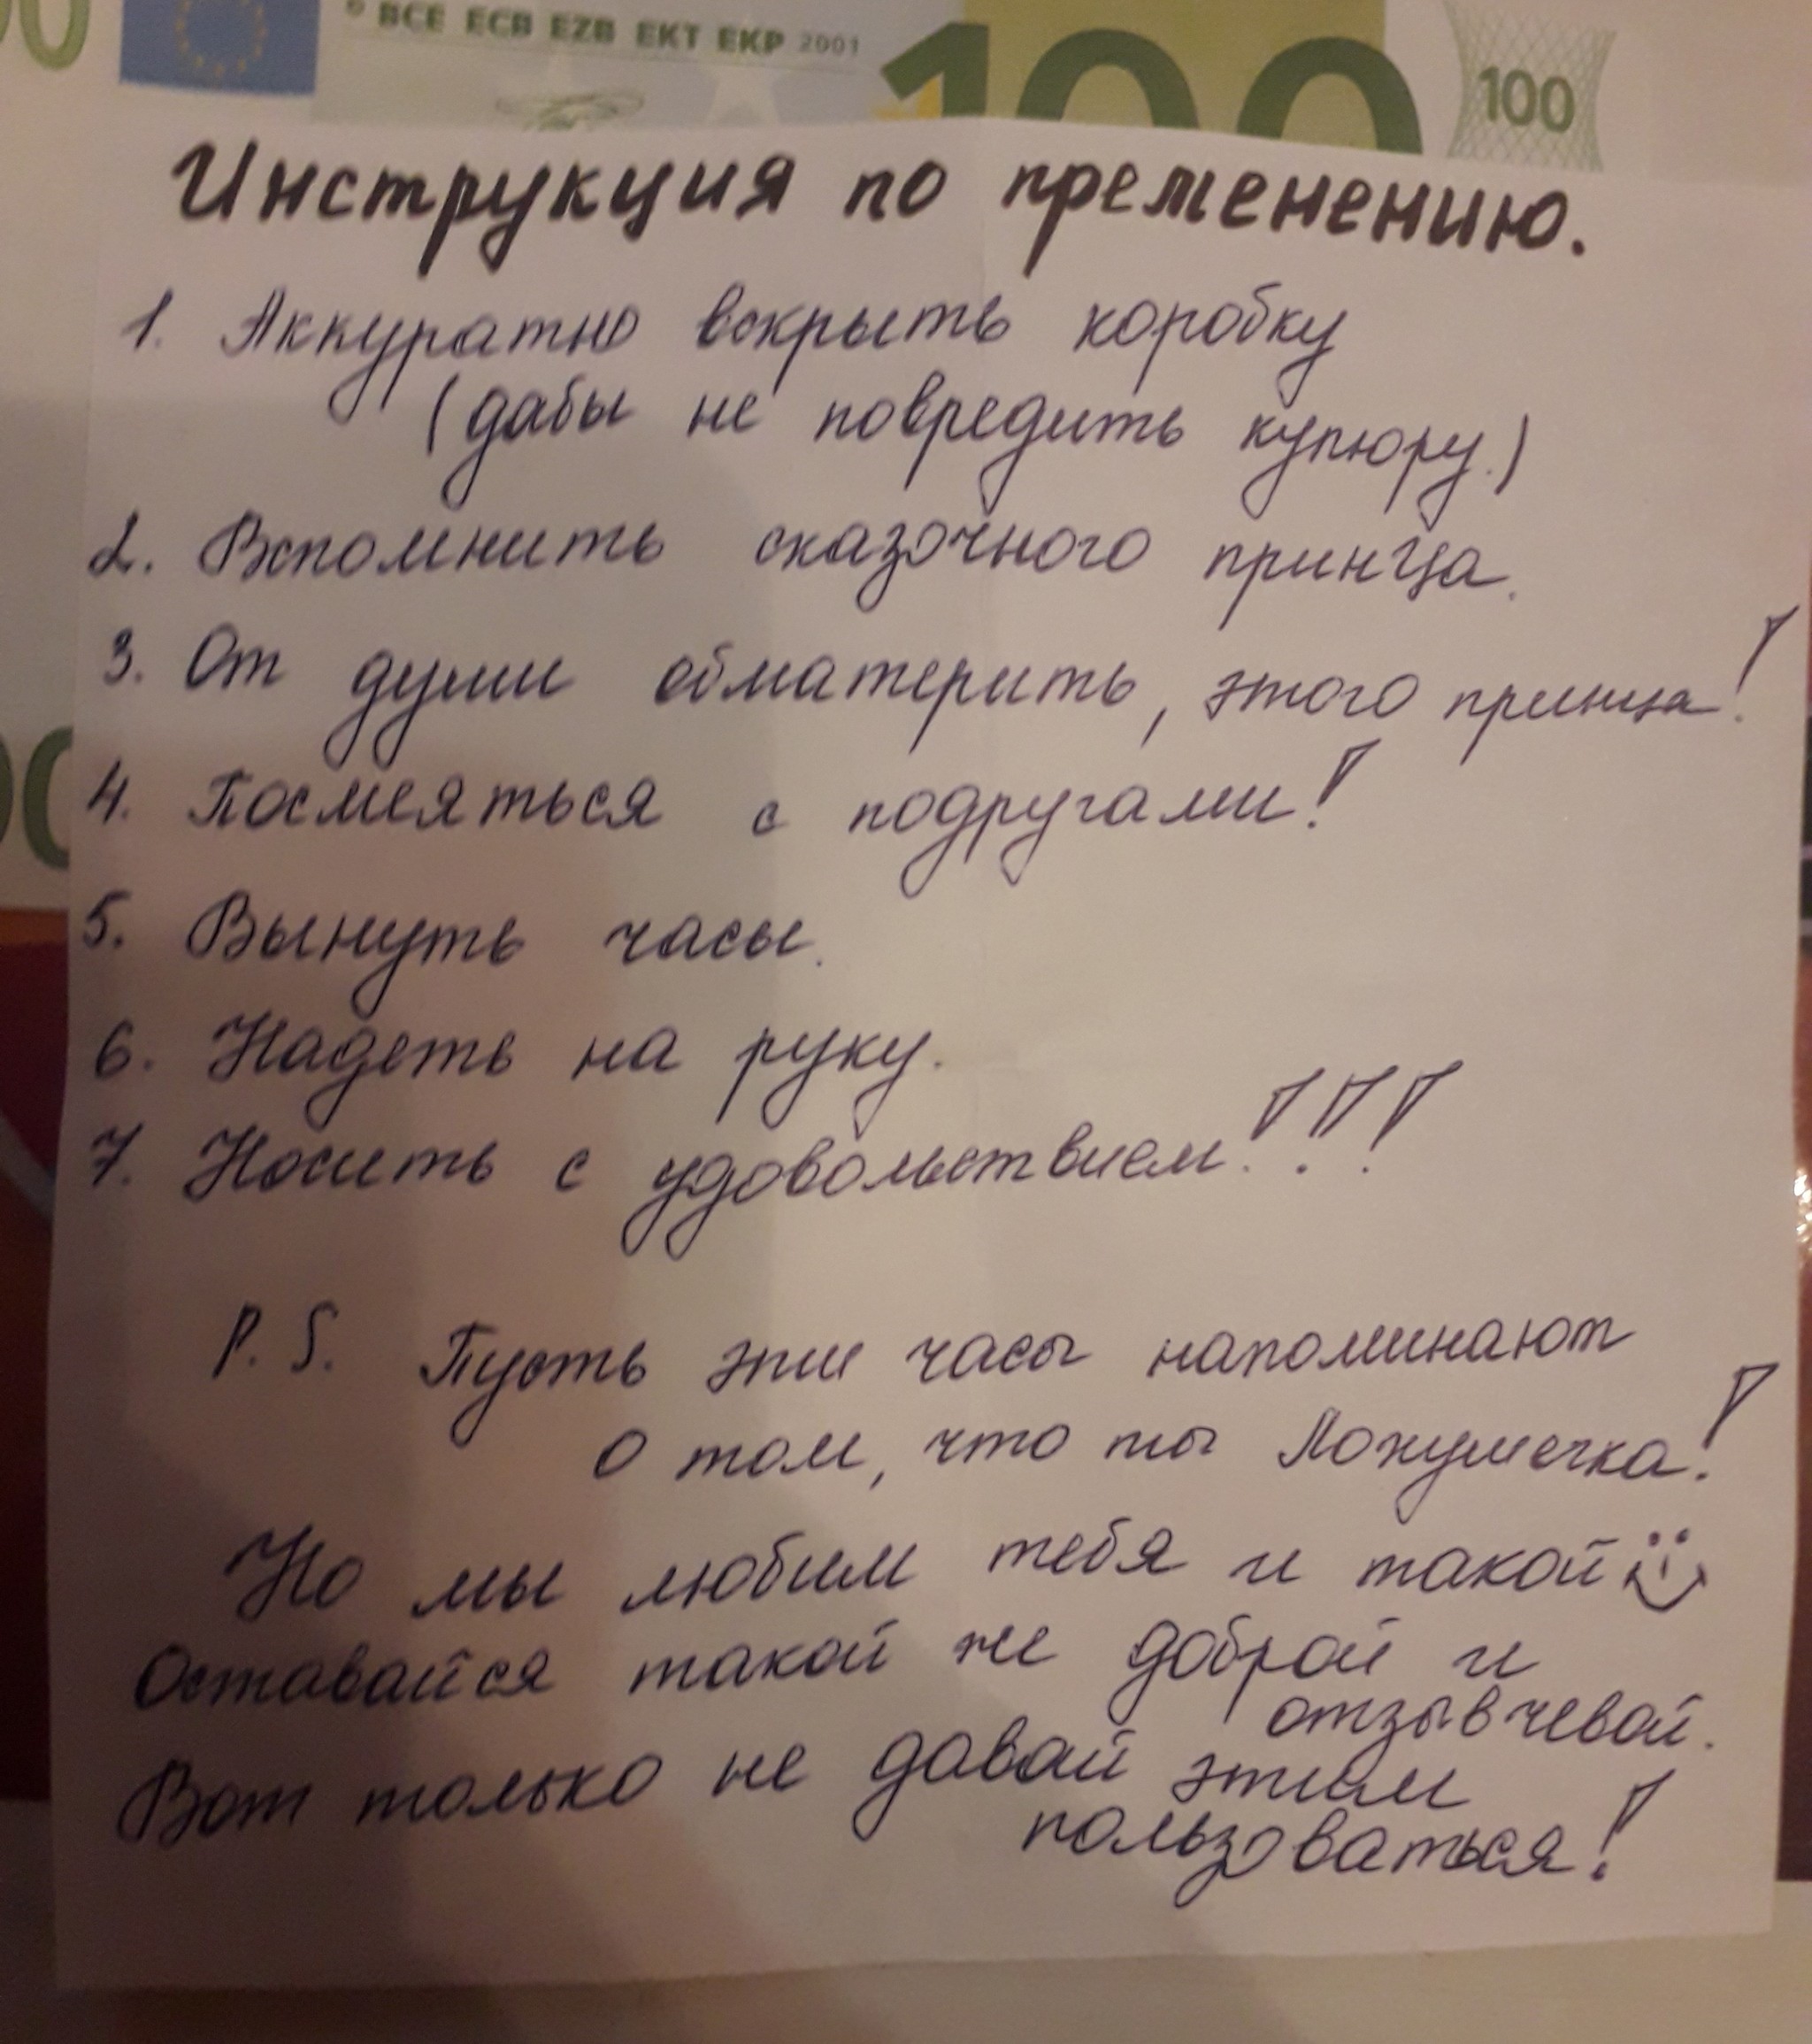 © BCE ECB EZB EKT EKP 2001
100
100
Инструкция по пременению.
1. Аккуратно вскрыть коробку
(дабы не повредить купюру.)
2. Вспомнить сказочного принца.
3. От души обматерить, этого принца!
4. Посмеяться с подругами!
5. Вынуть часы.
6. Надеть на руку.
7. Носить с удовольствием!!!
P. S. Пусть эти часы напоминают
о том, что ты Лохушечка!
Но мы любим тебя и такой
Оставайся такой же доброй и
отзывчевой.
Вот только не давай этим
пользоваться!